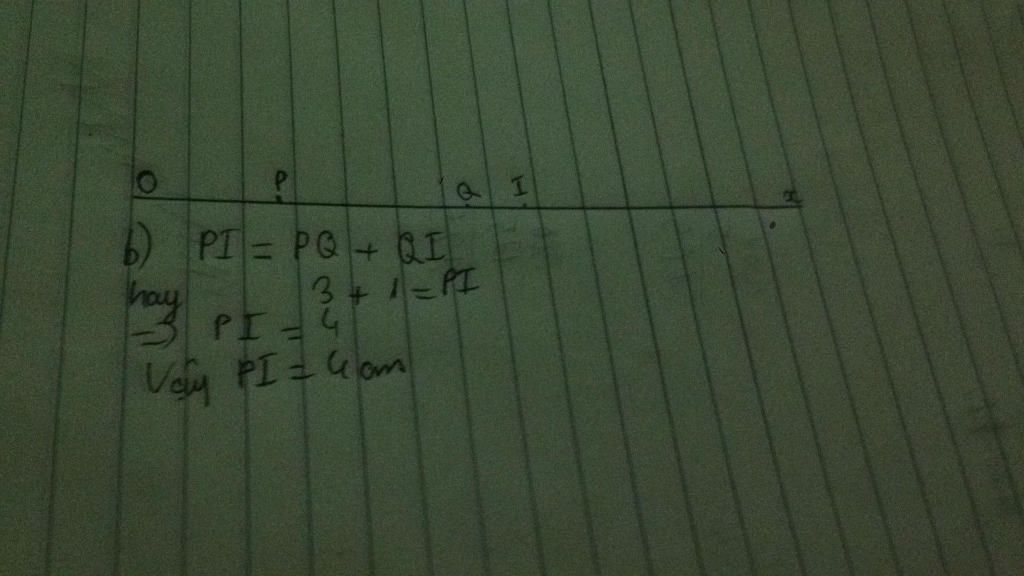 O P Q I x
b) PI = PQ + QI
hay 3 + 1 = PI
=> PI = 4
Vậy PI = 4 cm